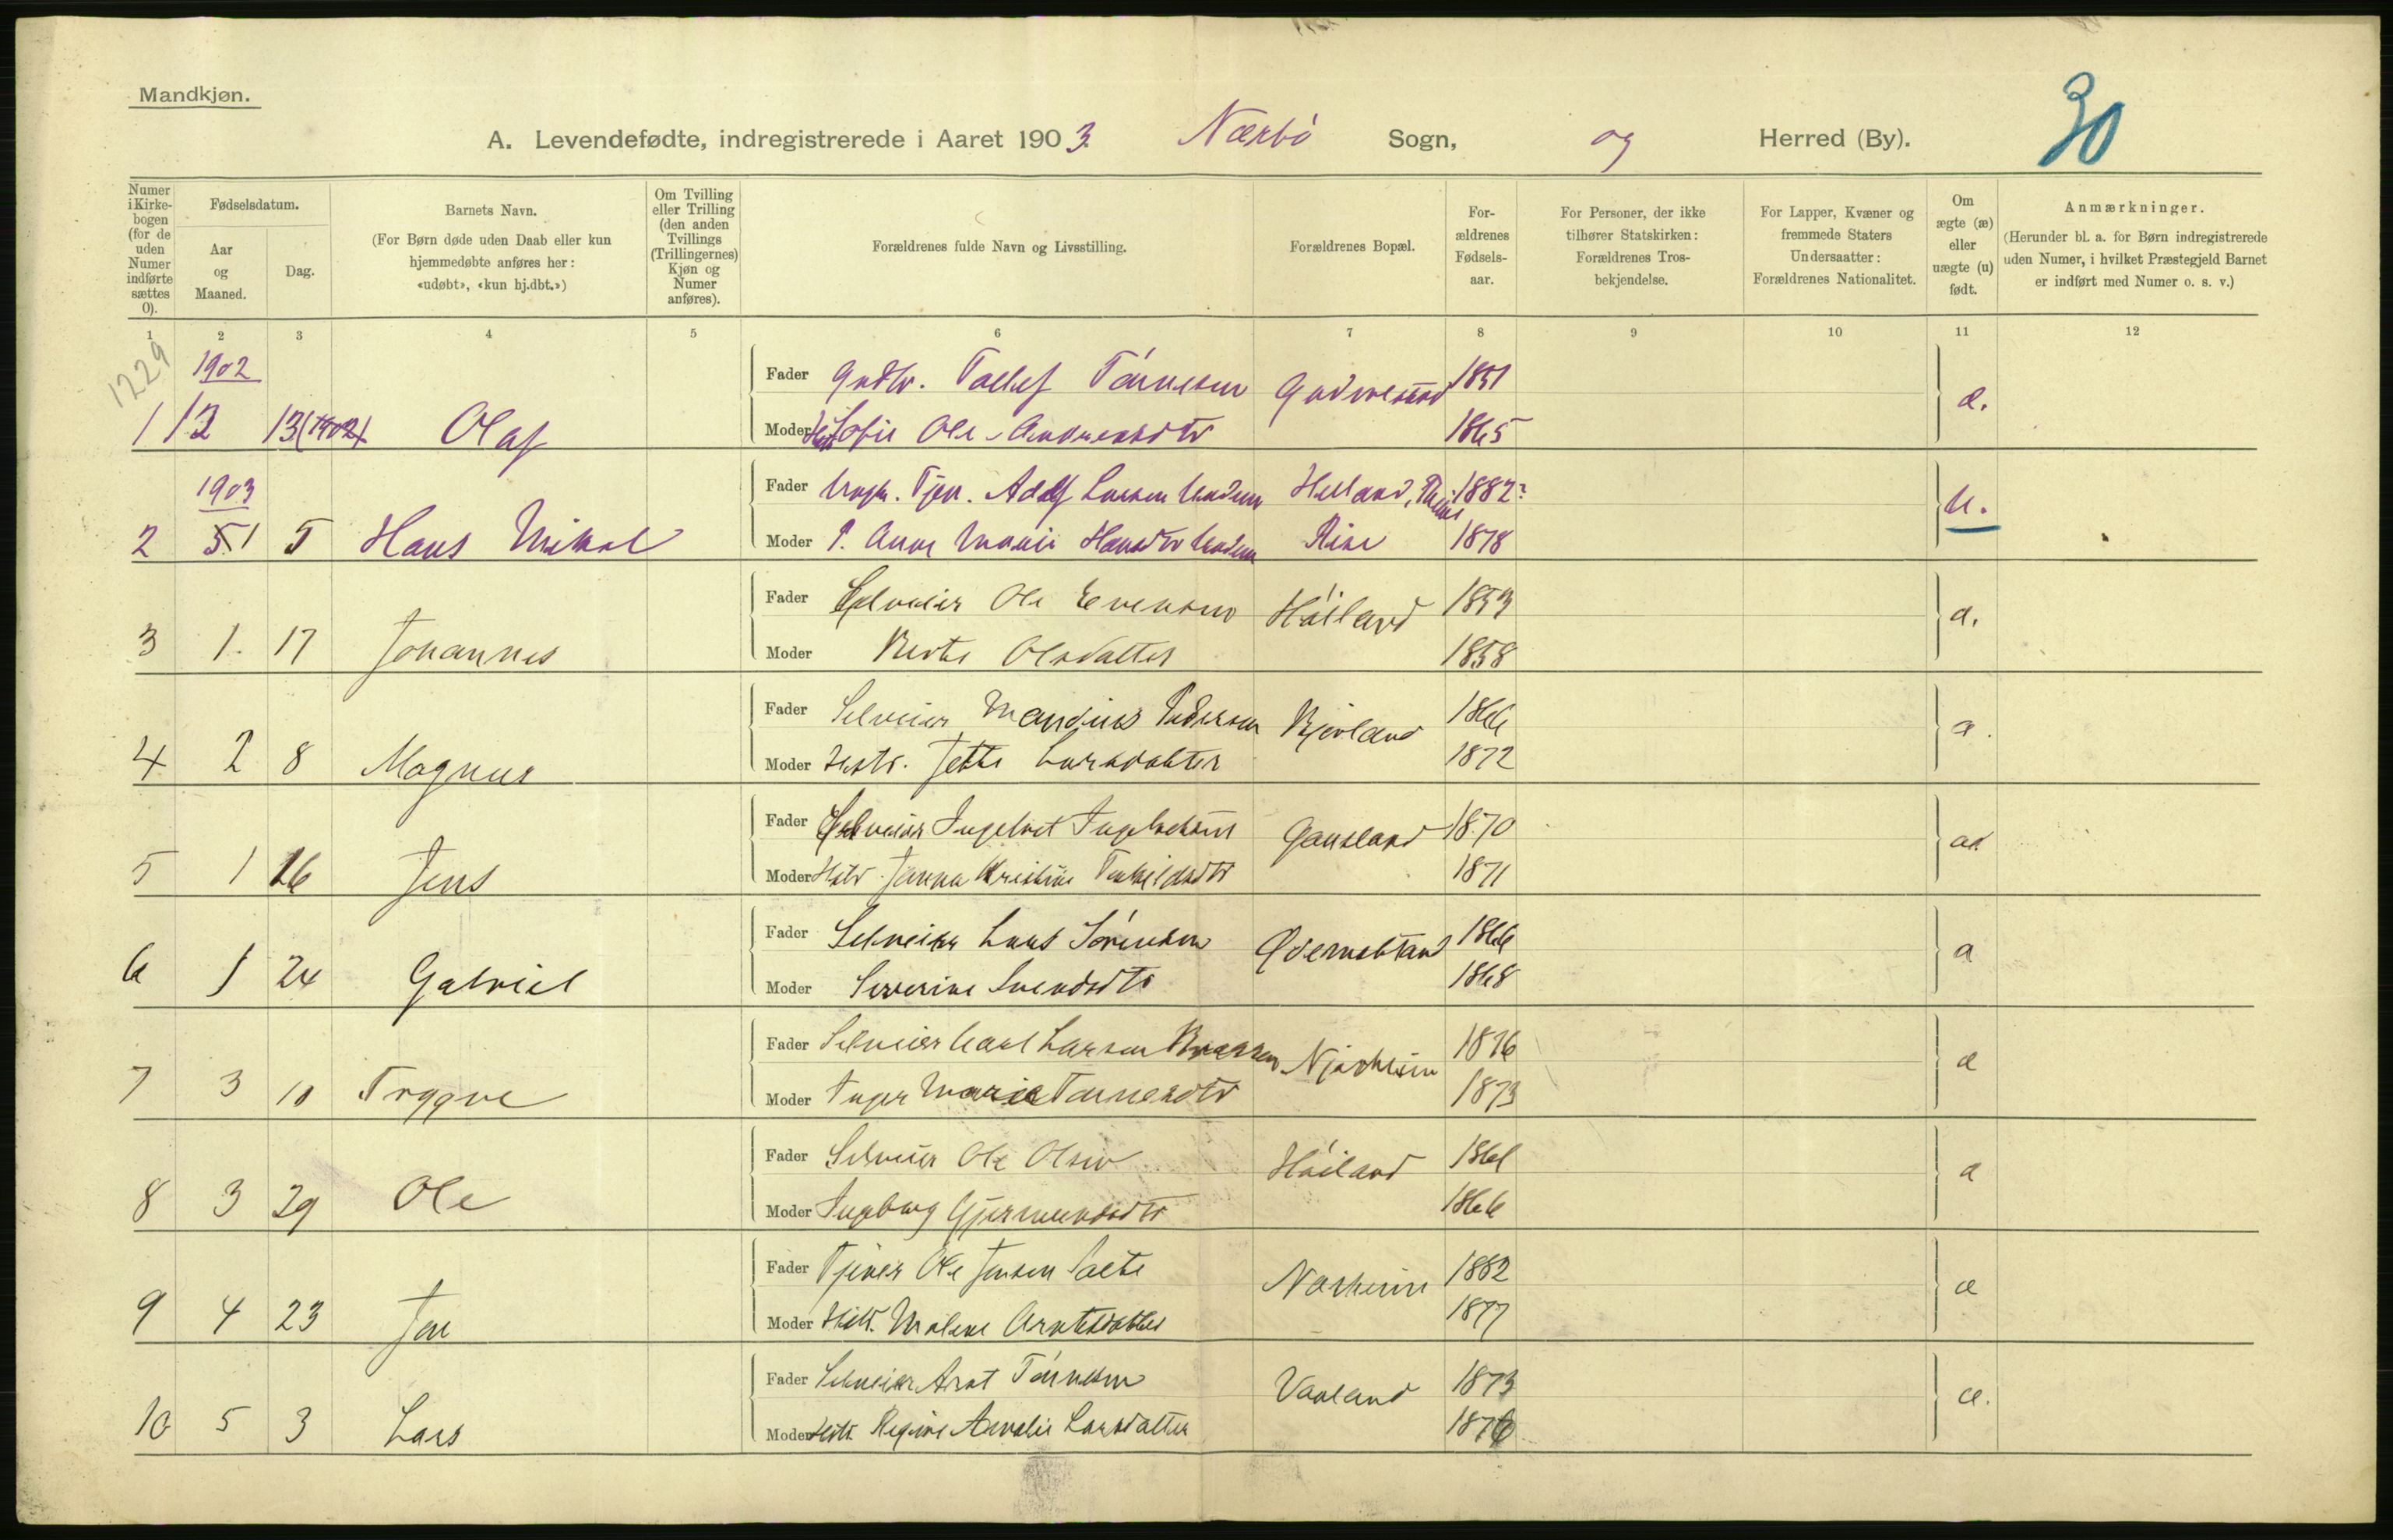 Mandkjøn.
30
A. Levendefødte, indregistrerede i Aaret 1903. Nærbö Sogn, og Herred (By).
Numer i Kirkebogen (for de uden Numer indførte sættes 0).
Fødselsdatum.
Aar og Maaned.
Dag.
Barnets Navn.
(For Børn døde uden Daab eller kun hjemmedøbte anføres her: «udøbt», «kun hj.dbt.»)
Om Tvilling eller Trilling (den anden Tvillings (Trillingernes) Kjøn og Numer anføres).
Forældrenes fulde Navn og Livsstilling.
Forældrenes Bopæl.
Forældrenes Fødselsaar.
For Personer, der ikke tilhører Statskirken: Forældrenes Trosbekjendelse.
For Lapper, Kvæner og fremmede Staters Undersaatter: Forældrenes Nationalitet.
Om ægte (æ) eller uægte (u) født.
Anmærkninger.
(Herunder bl. a. for Børn indregistrerede uden Numer, i hvilket Præstegjeld Barnet er indført med Numer o. s. v.)
1 2 3 4 5 6 7 8 9 10 11 12
1229
1902
Fader Tollef Tönnesen 1851
1 12 13 (1902) Olaf æ.
Moder Sofie Ole-Andreasdtr 1865
1903
Fader Tjen. Adolf Larsen Helland, 1882?
2 1 5 Hans Mikal u.
Moder P. Anne Marie Hansdtr Rise 1878
Fader Selveier Ole Evensen Höiland 1853
3 1. 17 Johannes æ.
Moder Berte Olsdatter 1858
Fader Selveier Mandius Pedersen Bjorland 1866
4 2 8 Magnus æ.
Moder Hustr. Jette Larsdatter 1872
Fader Selveier Ingebret Ingebretsen Gausland 1870
5 1 16 Jens æ
Moder Hstr. Janna Kristine Torkildsdtr 1871
Fader Selveier Lars Sörensen Ødemotland 1866
6 1 24 Gabriel æ
Moder Severine Svendsdtr 1868
Fader Selveier Carl Larsen Njærheim 1876
7 3 10 Trygve æ
Moder Inger Marie Tönnesdtr 1873
Fader Selveier Ole Olsen Höiland 1861
8 3 29 Ole æ
Moder Ingeborg Gjermundsdtr 1866
Fader Tjener Ole Jensen Salte Nærheim 1882
9 4 23 Jon æ
Moder Hstr. Malene Arntsdatter 1877
Fader Selveier Arnt Tönnesen Vaaland 1873
10 5 3 Lars æ.
Moder Hstr. Regine Amalie Larsdatter 1876